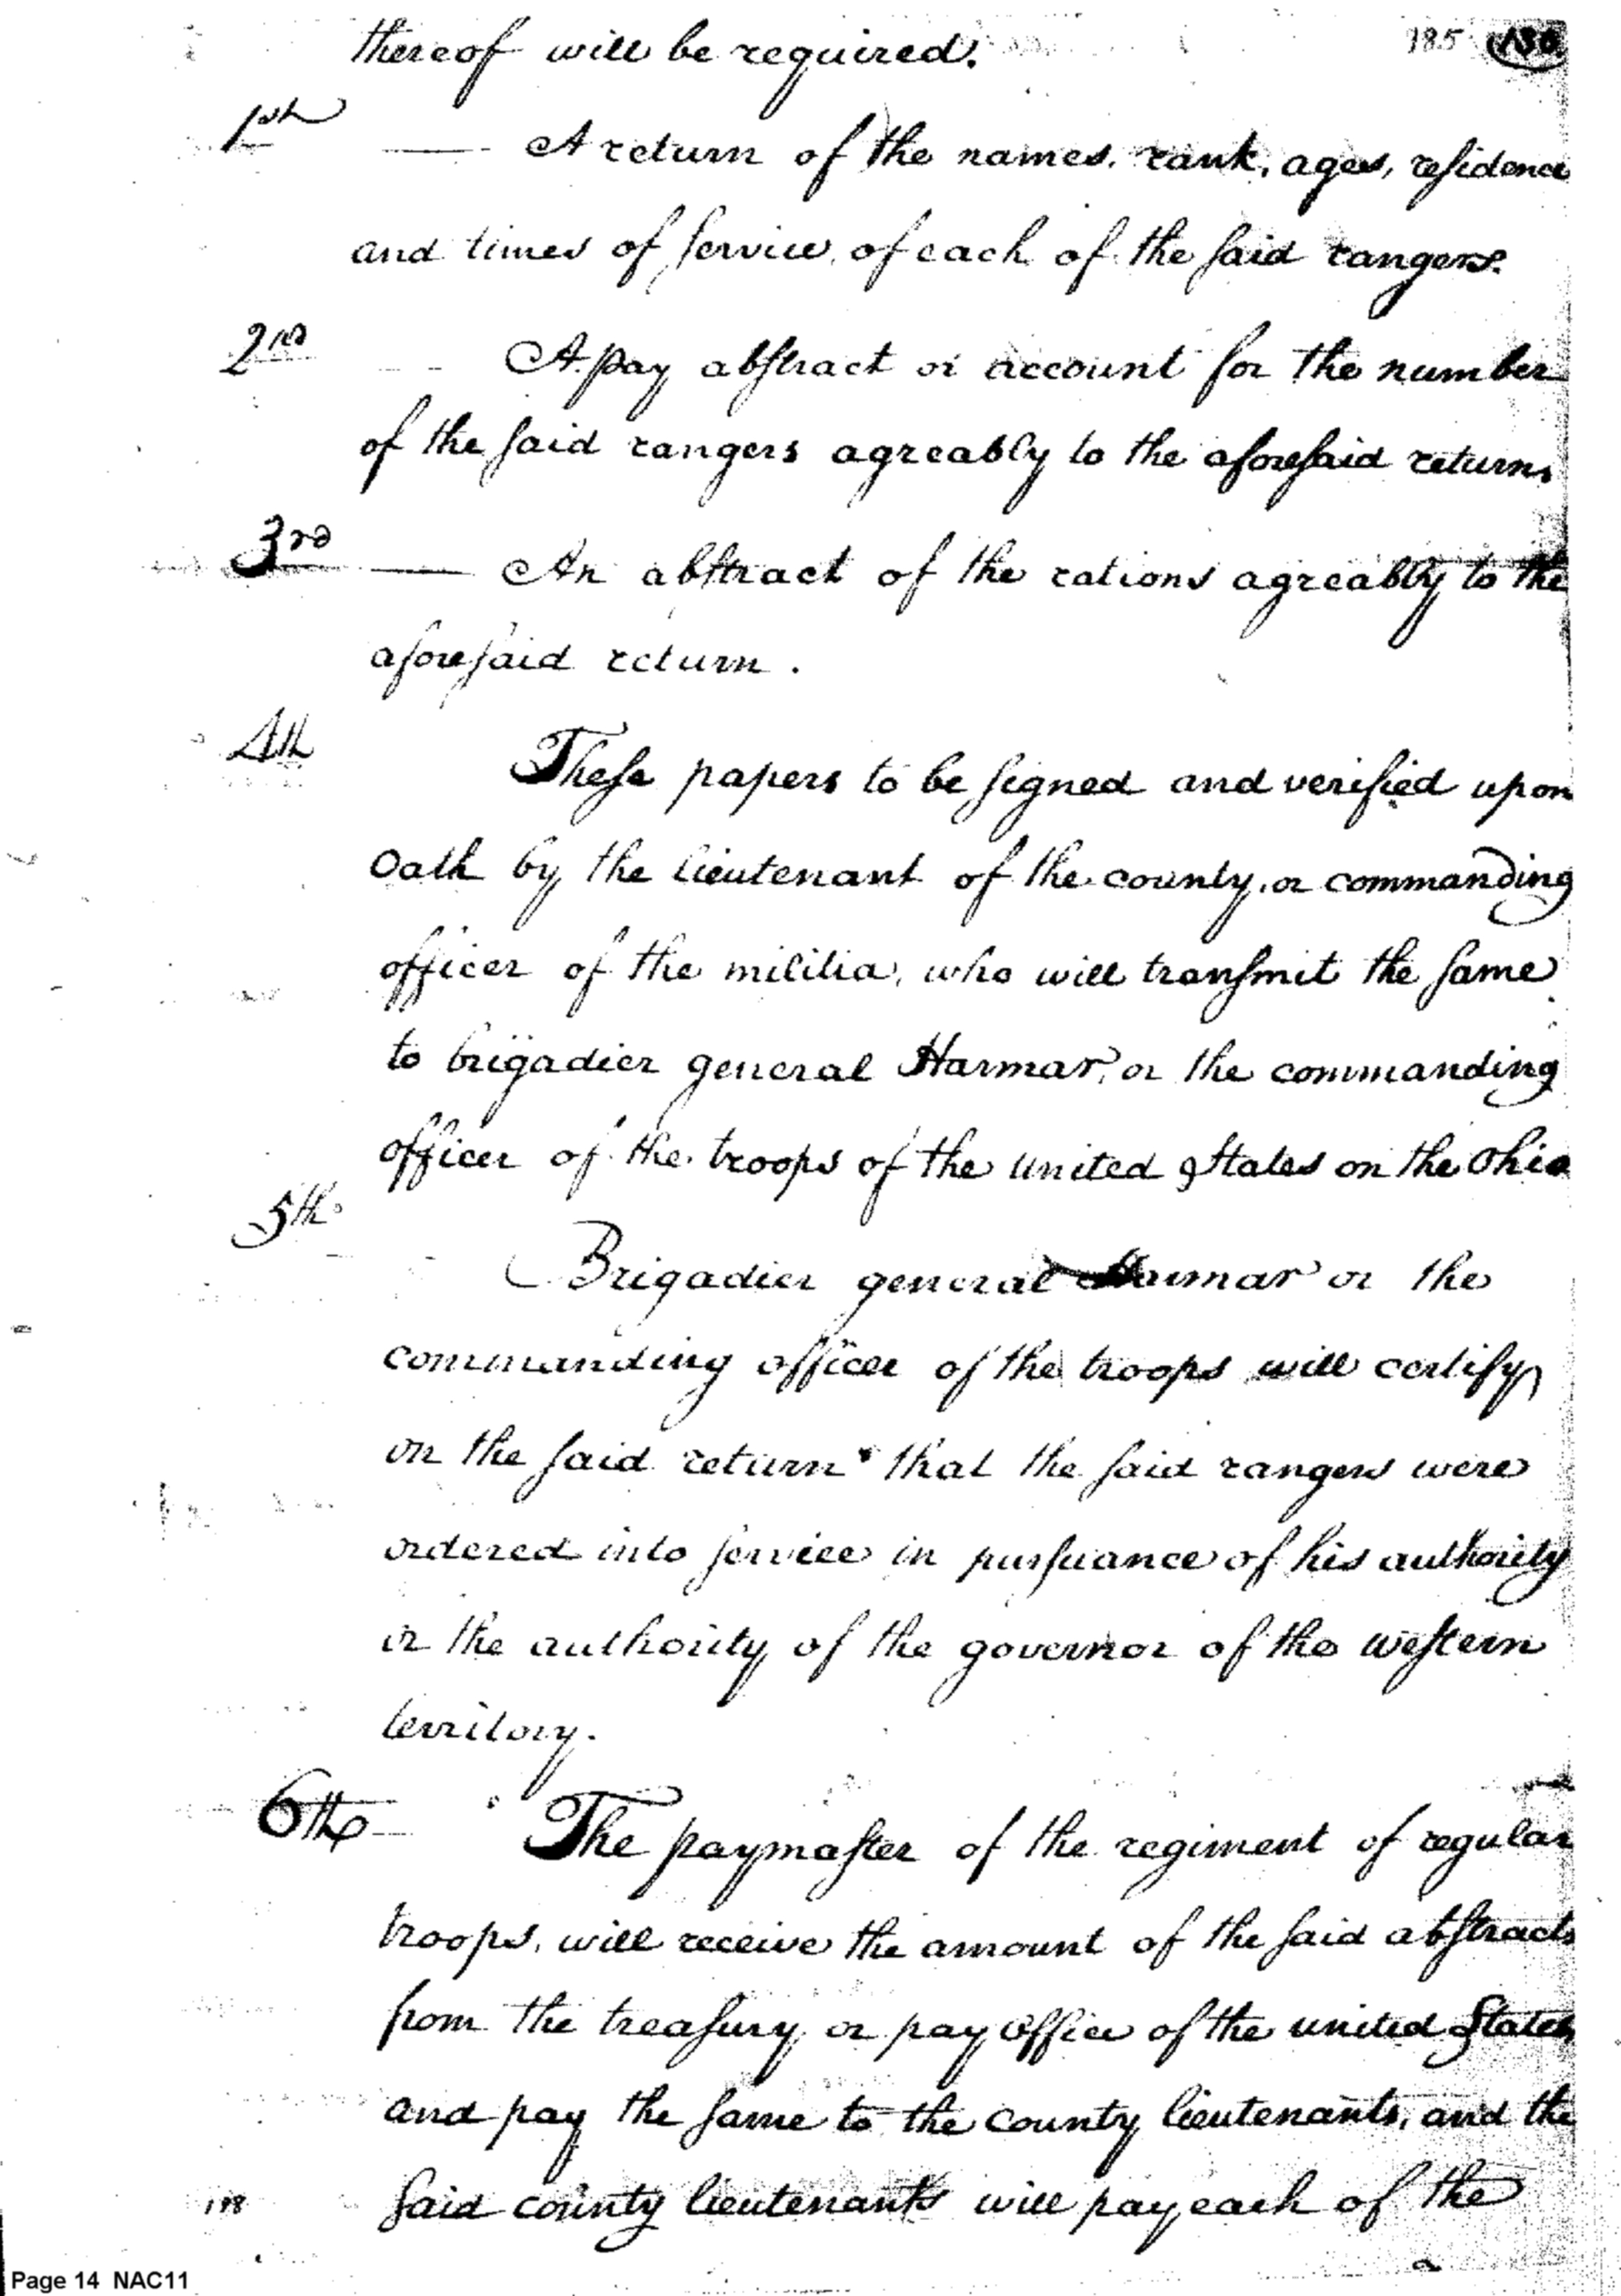 thereof will be required.
185 186
1st — A return of the names, rank, ages, residence
and times of service, of each of the said rangers.
2nd — A pay abstract or account for the number
of the said rangers agreably to the aforesaid return.
3rd — An abstract of the rations agreably to the
aforesaid return.
4th These papers to be signed and verified upon
Oath by the lieutenant of the county, or commanding
officer of the militia, who will transmit the same
to brigadier general Harmar, or the commanding
officer of the troops of the united States on the Ohio
5th Brigadier general Harmar or the
commanding officer of the troops will certify
on the said return that the said rangers were
ordered into service in pursuance of his authority
or the authority of the governor of the western
territory.
6th The paymaster of the regiment of regular
troops, will receive the amount of the said abstracts
from the treasury or pay office of the united States
and pay the same to the county lieutenants, and the
said county lieutenants will pay each of the
198
Page 14 NAC11